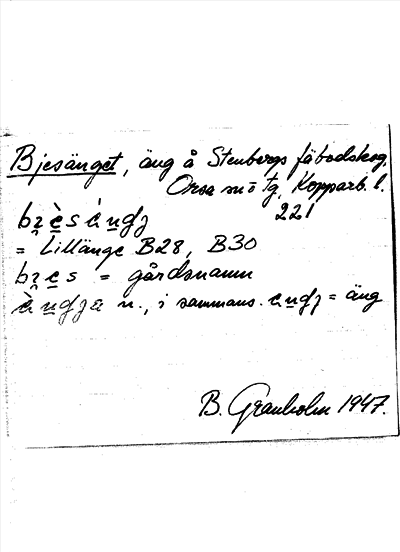 Bjesänget, äng å Stenbergs fäbodskog,
Orsa sn ö tg, Kopparb. l.
221
= Lillänge B28, B30
= gårdsnamn
n., i sammans. = äng
B. Granholm 1947.